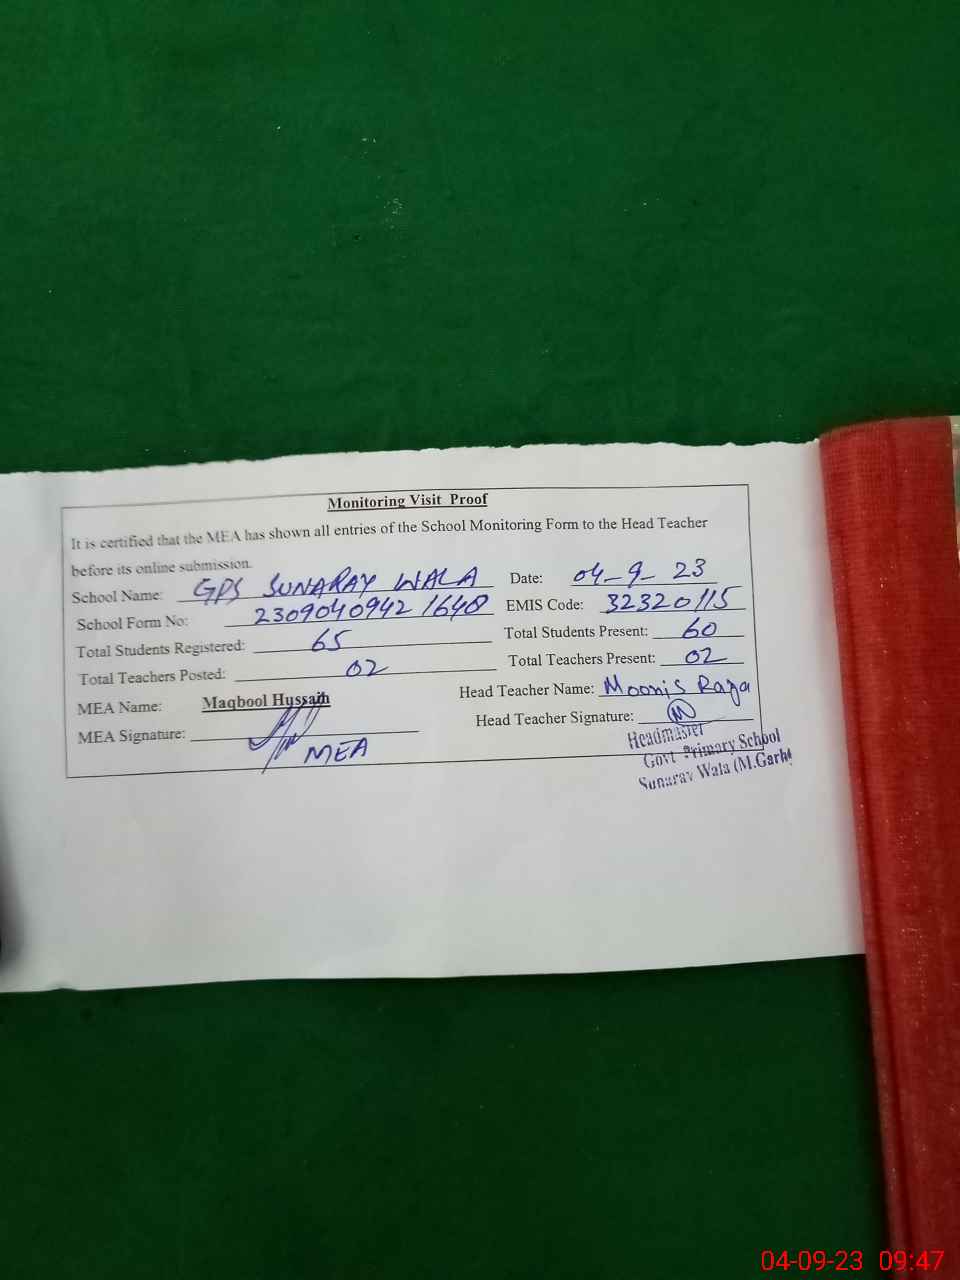 Monitoring Visit Proof
It is certified that the MEA has shown all entries of the School Monitoring Form to the Head Teacher
before its online submission.
School Name: GPS SUNARAY WALA Date: 04-9-23
School Form No: 23090409421648 EMIS Code: 32320115
Total Students Registered: 65 Total Students Present: 60
Total Teachers Posted: 02 Total Teachers Present: 02
MEA Name: Maqbool Hussain Head Teacher Name: Moonis Raza
MEA Signature: MEA Head Teacher Signature: M
Headmaster
Govt Primary School
Sunaray Wala (M.Garh)
04-09-23 09:47